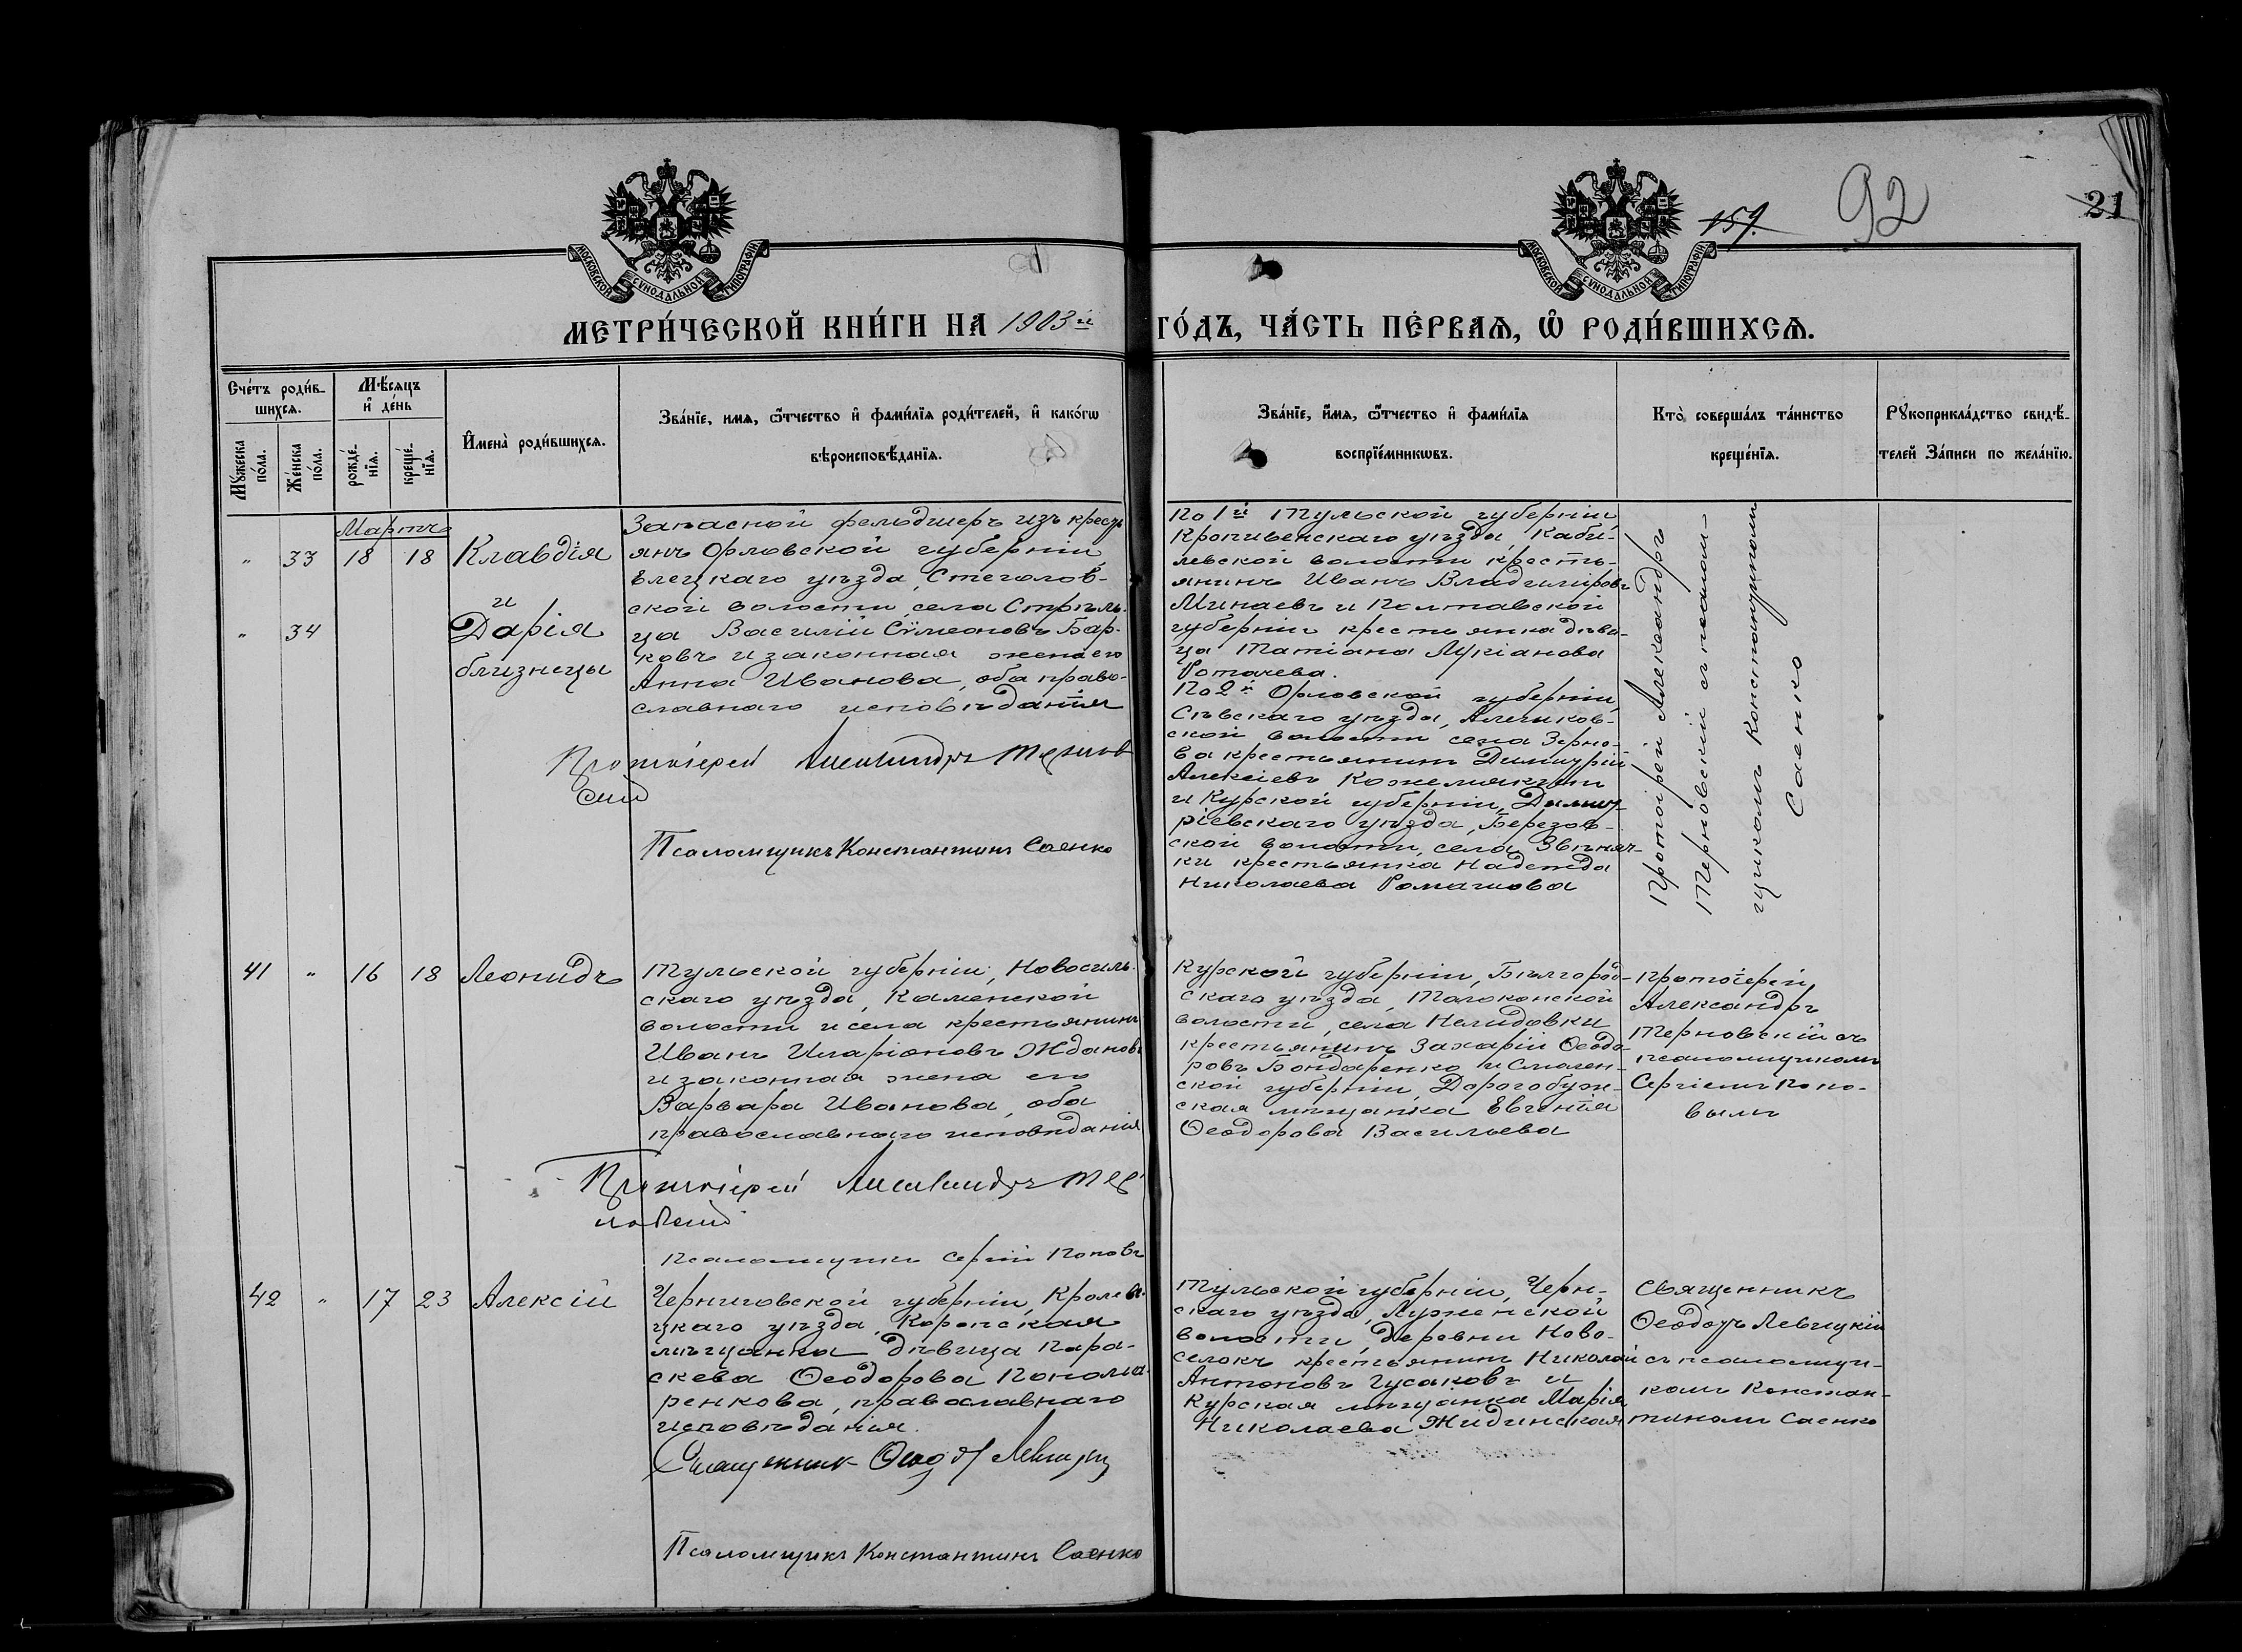 159.
92
21
МОСКОВСКОЙ СѴНОДАЛЬНОЙ ТИПОГРАФІИ
МОСКОВСКОЙ СѴНОДАЛЬНОЙ ТИПОГРАФІИ
МЕТРИ́ЧЕСКОЙ КНИ́ГИ НА 1903й ГО́ДЪ, ЧА́СТЬ ПЕ́РВАѦ, Ѡ҆ РОДИ́ВШИХСѦ.
Сче́тъ роди́в-
шихсѧ.
Мѣ́сѧцъ
и҆ де́нь
Мꙋ́жеска по́ла.
Же́нска по́ла.
рожде́-
нїѧ.
креще́-
нїѧ.
И҆мена̀ роди́вшихсѧ.
Зва́нїе, имѧ, ѻ҆́тчество и҆ фами́лїѧ роди́телей, и҆ како́гѡ
вѣроисповѣ́данїѧ.
Зва́нїе, и҆́мѧ, ѻ҆́тчество и҆ фами́лїѧ
воспрїе́мникѡвъ.
Кто̀ соверша́лъ та́инство
креще́нїѧ.
Рꙋкоприкла́дство свидѣ́-
телей За́писи по жела́нїю.
Мартъ
" 33 18 18 Клавдія
и
" 34 Дарія
близнецы
Запасной фельдшеръ изъ кресть
янъ Орловской губерніи,
Елецкаго уѣзда, Стеголов-
ской волости, села Стрѣль-
ца Василій Сѵмеоновъ Бар-
ковъ и законная жена его
Анна Иванова, оба право-
славнаго исповѣданія
Протоіерей Александръ Тернов
скій
Псаломщикъ Константинъ Саенко
По 1й Тульской губерніи,
Кропивенскаго уѣзда, Каби-
левской волости кресть-
янинъ Иванъ Владиміровъ
Минаевъ и Полтавской
губерніи крестьянка дѣви-
ца Татіана Лукіанова
Роточева.
По 2й Орловской губерніи,
Сѣвскаго уѣзда, Алешков-
ской волости села Зерно-
ва крестьянинъ Димитрій
Алексіевъ Кожемякинъ
и Курской губерніи, Дмит-
ріевскаго уѣзда, Березов-
ской волости, села Звѣняч-
ки крестьянка Надежда
Николаева Ромашова
Протоіерей Александръ
Терновскій съ псалом-
щикомъ Константиномъ
Саенко
41 " 16 18 Леонидъ
Тульской губерніи, Новосиль-
скаго уѣзда, Каменской
волости и села крестьянинъ
Иванъ Иларіоновъ Ждановъ
и законная жена его
Варвара Иванова, оба
православнаго исповѣданія
Протоіерей Александръ Тер
новскій
Псаломщикъ Сергій Поповъ
Курской губерніи, Бѣлгород-
скаго уѣзда, Толоконской
волости, села Нелидовки
крестьянинъ Захарій Ѳеодо-
ровъ Бондаренко и Смолен-
ской губерніи, Дорогобуж-
ская мѣщанка Евгенія
Ѳеодорова Васильева
Протоіерей
Александръ
Терновскій съ
псаломщикомъ
Сергіемъ Попо-
вымъ
42 " 17 23 Алексій
Черниговской губерніи, Кролеве-
цкаго уѣзда, Коропская
мѣщанка дѣвица Пара-
скева Ѳеодорова Понома-
ренкова, православнаго
исповѣданія.
Священникъ Ѳеодоръ Левицкій
Псаломщикъ Константинъ Саенко
Тульской губерніи, Черн-
скаго уѣзда, Луженской
волости, деревни Ново-
селокъ крестьянинъ Николай
Антоновъ Гусаковъ и
Курская мѣщанка Марія
Николаева Жидинская
Священникъ
Ѳеодоръ Левицкій
съ псаломщи-
комъ Констан-
тиномъ Саенко